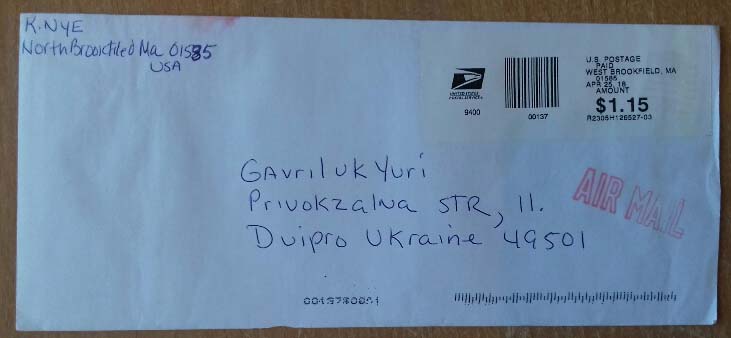 K. NYE
North Brookfiled Ma 01585
USA
UNITED STATES
POSTAL SERVICE
9400
00137
U.S. POSTAGE
PAID
WEST BROOKFIELD, MA
01585
APR 25, 18
AMOUNT
$1.15
R2305H126527-03
Gavriluk Yuri
Privokzalna STR, 11.
Dnipro Ukraine 49501
AIR MAIL